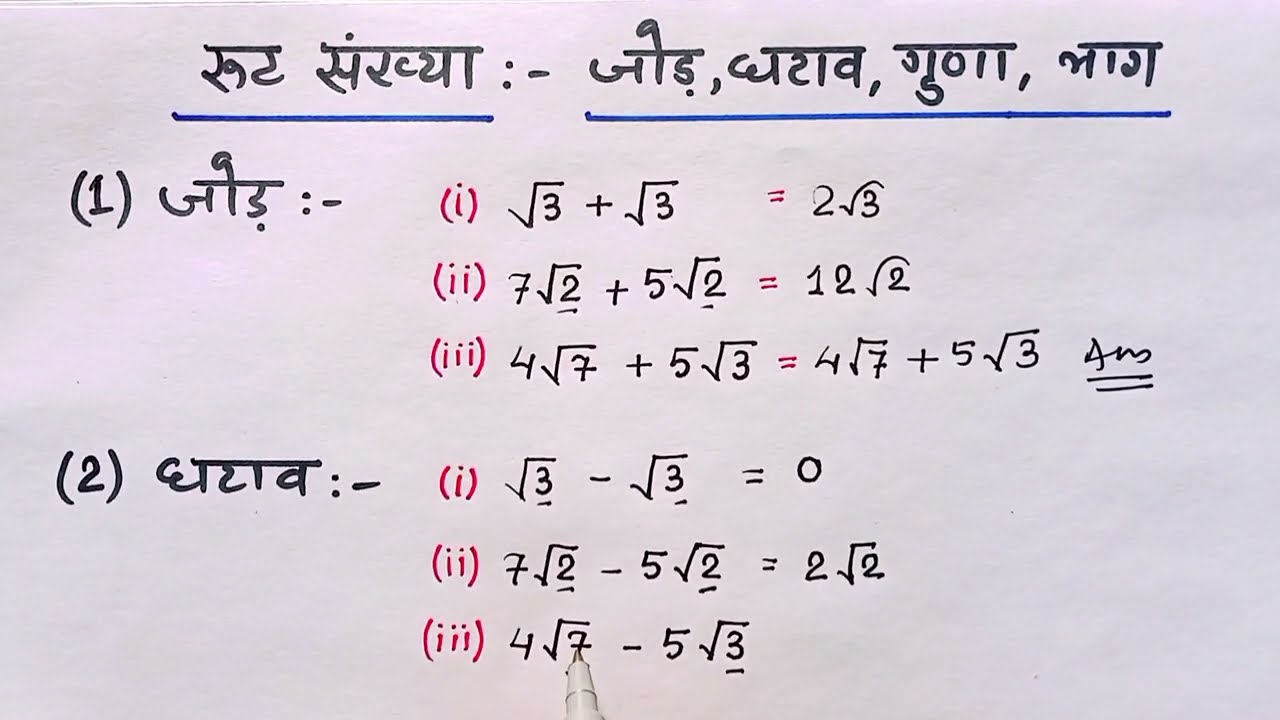 रूट संख्या :- जोड़, घटाव, गुणा, भाग
(1) जोड़ :- (i) √3 + √3 = 2√3
(ii) 7√2 + 5√2 = 12√2
(iii) 4√7 + 5√3 = 4√7 + 5√3 Ans
(2) घटाव :- (i) √3 - √3 = 0
(ii) 7√2 - 5√2 = 2√2
(iii) 4√7 - 5√3